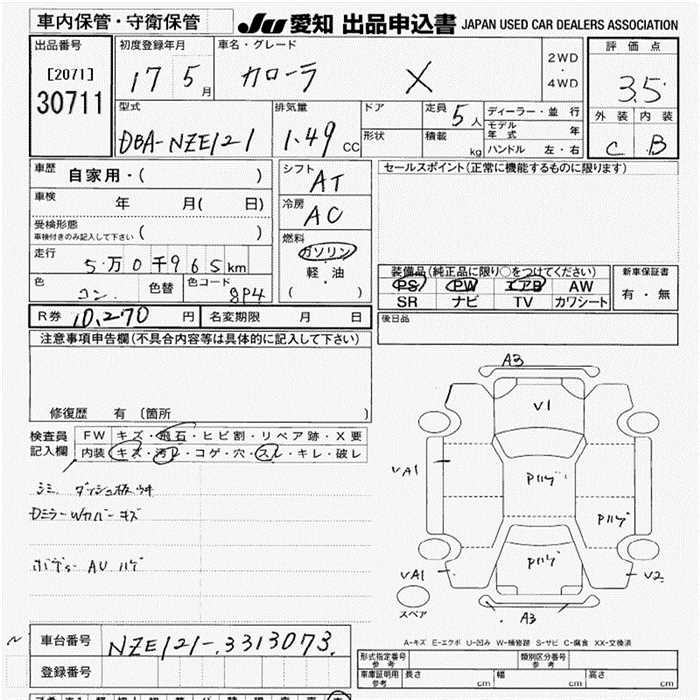 車内保管・守衛保管
JU 愛知 出品申込書 JAPAN USED CAR DEALERS ASSOCIATION
出品番号
[2071]
30711
初度登録年月
17 5月
車名・グレード
カローラ X
2WD
・
4WD
評価点
3.5
外装 内装
C B
型式
DBA-NZE121
排気量
1.49 CC
ドア
形状
定員 5人
積載 kg
ディーラー・並行
モデル年式 年
ハンドル 左・右
車歴 自家用・( )
車検 年 月( 日)
受検形態
車検付きのみ記入して下さい ( )
走行
5万0千965km
色 コン. 色替 色コード 8P4
シフト
AT
冷房
AC
燃料
ガソリン
軽・油
( )
セールスポイント(正常に機能するものに限ります)
装備品(純正品に限り○をつけてください)
PS PW エアB AW
SR ナビ TV カワシート
新車保証書
有・無
後日品
R券 10,270 円 名変期限 月 日
注意事項申告欄(不具合内容等は具体的に記入して下さい)
修復歴 有 〔箇所 〕
検査員
記入欄
FW キズ・飛石・ヒビ割・リペア跡・X要
内装 キズ・汚レ・コゲ・穴・スレ・キレ・破レ
シミ. ダッシュ板ウキ
DミラーWカバーキズ
ボデー AU ハゲ
A3
V1
VA1
Pハゲ
Pハゲ
Pハゲ
VA1
V2
スペア
A3
A-キズ E-エクボ U-凹み W-補修跡 S-サビ C-腐食 XX-交換済
~ 車台番号 NZE121-3313073
登録番号
形式指定番号
参考
類別区分番号
参考
車庫証明用
参考
長さ cm 幅 cm 高さ cm